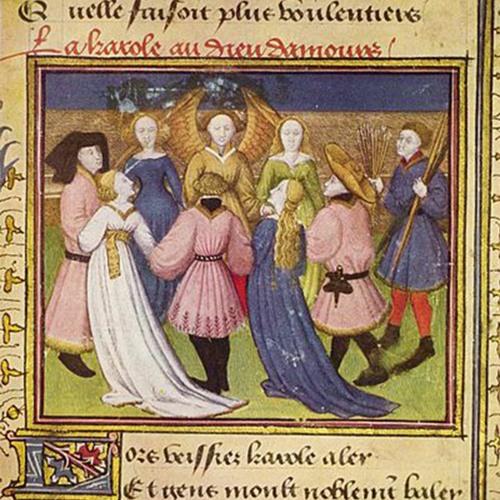 Quelle faisoit plus voulentiers
La karole au dieu damours
Lors veissiez karole aler
Et gens moult noblemt baler